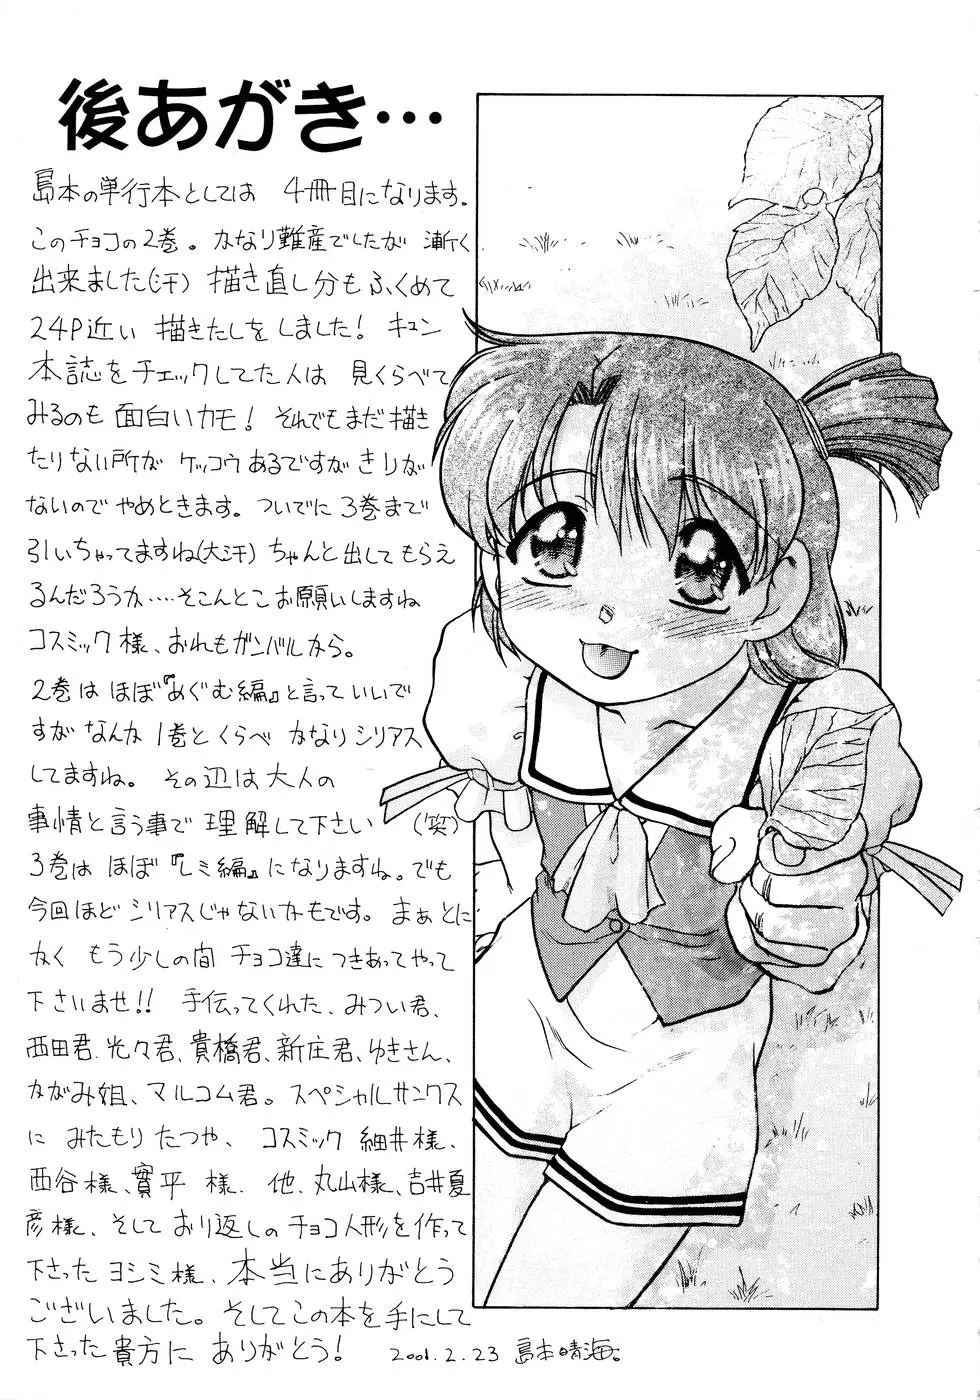 後あがき…
島本の単行本としては 4冊目になります。
このチョコの2巻。かなり難産でしたが 漸く
出来ました(汗) 描き直し分もふくめて
24P近い 描きたしをしました! キュン
本誌をチェックしてた人は 見くらべて
みるのも 面白いカモ! それでもまだ描き
たりない所が ケッコウあるですがきりが
ないのでやめときます。ついでに3巻まで
引いちゃってますね(大汗) ちゃんと出してもらえ
るんだろうか‥‥そこんとこお願いしますね
コスミック様、おれもガンバルから。
2巻はほぼ『めぐむ編』と言っていいで
すがなんか1巻とくらべ かなりシリアス
してますね。その辺は大人の
事情と言う事で理解して下さい (笑)
3巻はほぼ『レミ編』になりますね。でも
今回ほどシリアスじゃないかもです。まぁとに
かく もう少しの間 チョコ達につきあってやって
下さいませ!! 手伝ってくれた、みつい君、
西田君、光々君、貴橋君、新庄君、ゆきさん、
かがみ姐、マルコム君。スペシャルサンクス
に みたもりたつや、コスミック 細井様、
西谷様、實平 様. 他.丸山様、吉井夏
彦様、そしており返しのチョコ人形を作って
下さったヨシミ様、本当にありがとう
ございました。そしてこの本を手にして
下さった貴方に ありがとう! 2001.2.23 島本晴海。